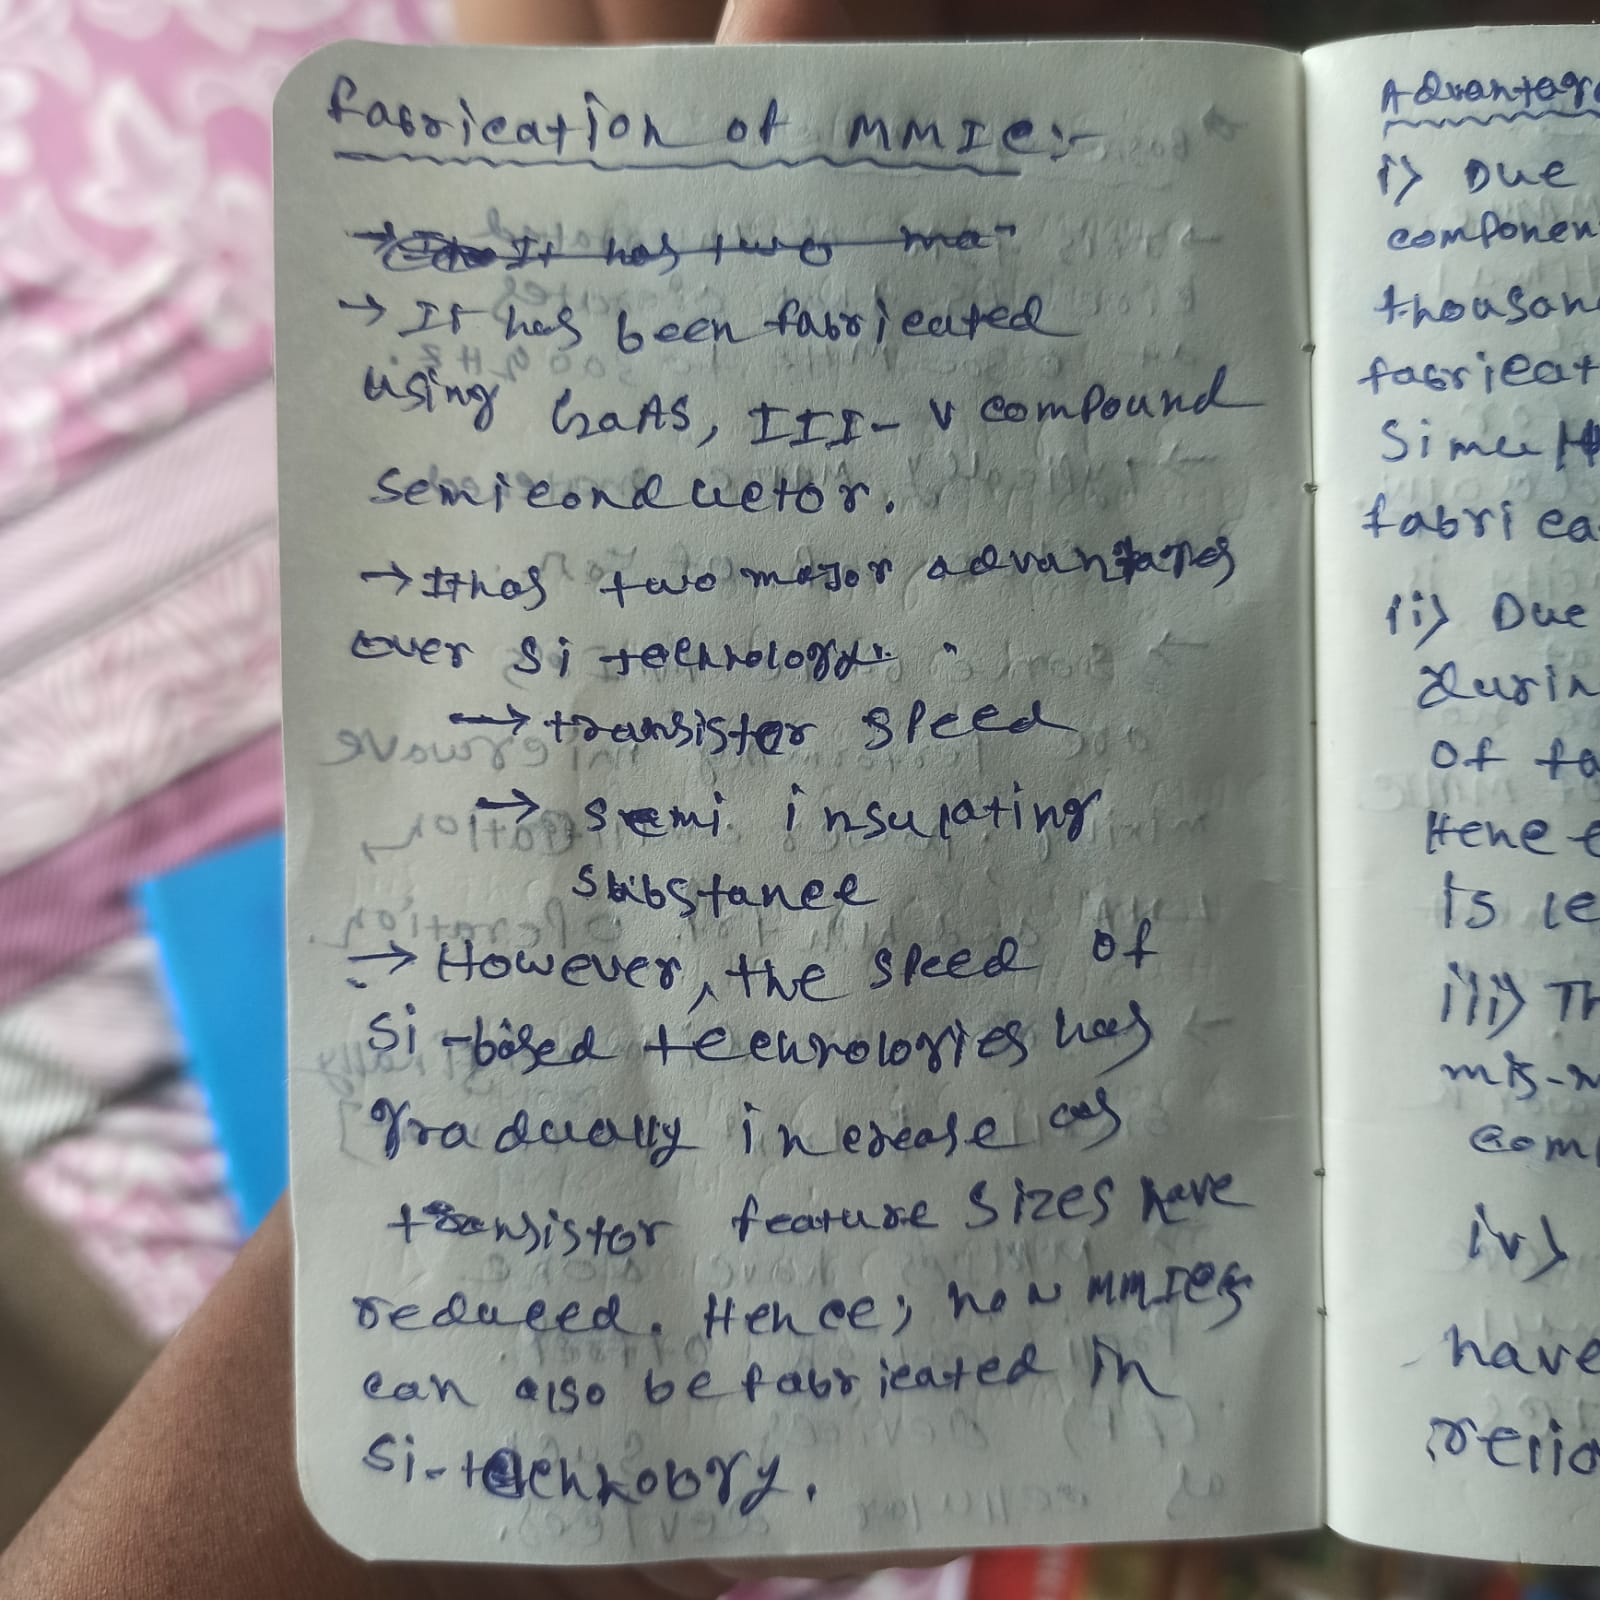 Fabrication of MMIC:-
→ It has two ma
→ It has been fabricated
using GaAS, III-V compound
semiconductor.
→ It has two major advantages
over Si technology:
→ transistor speed
→ semi insulating
substance
→ However, the speed of
Si-based technologies has
gradually increase as
transistor feature sizes have
reduced. Hence, now MMICs
can also be fabricated in
Si-technology.
Advantage
i) Due
componen
thousan
fabricat
Simul
fabrica
ii) Due
durin
of fa
Hene e
is le
iii) Th
mis-m
comp
iv)
have
relia